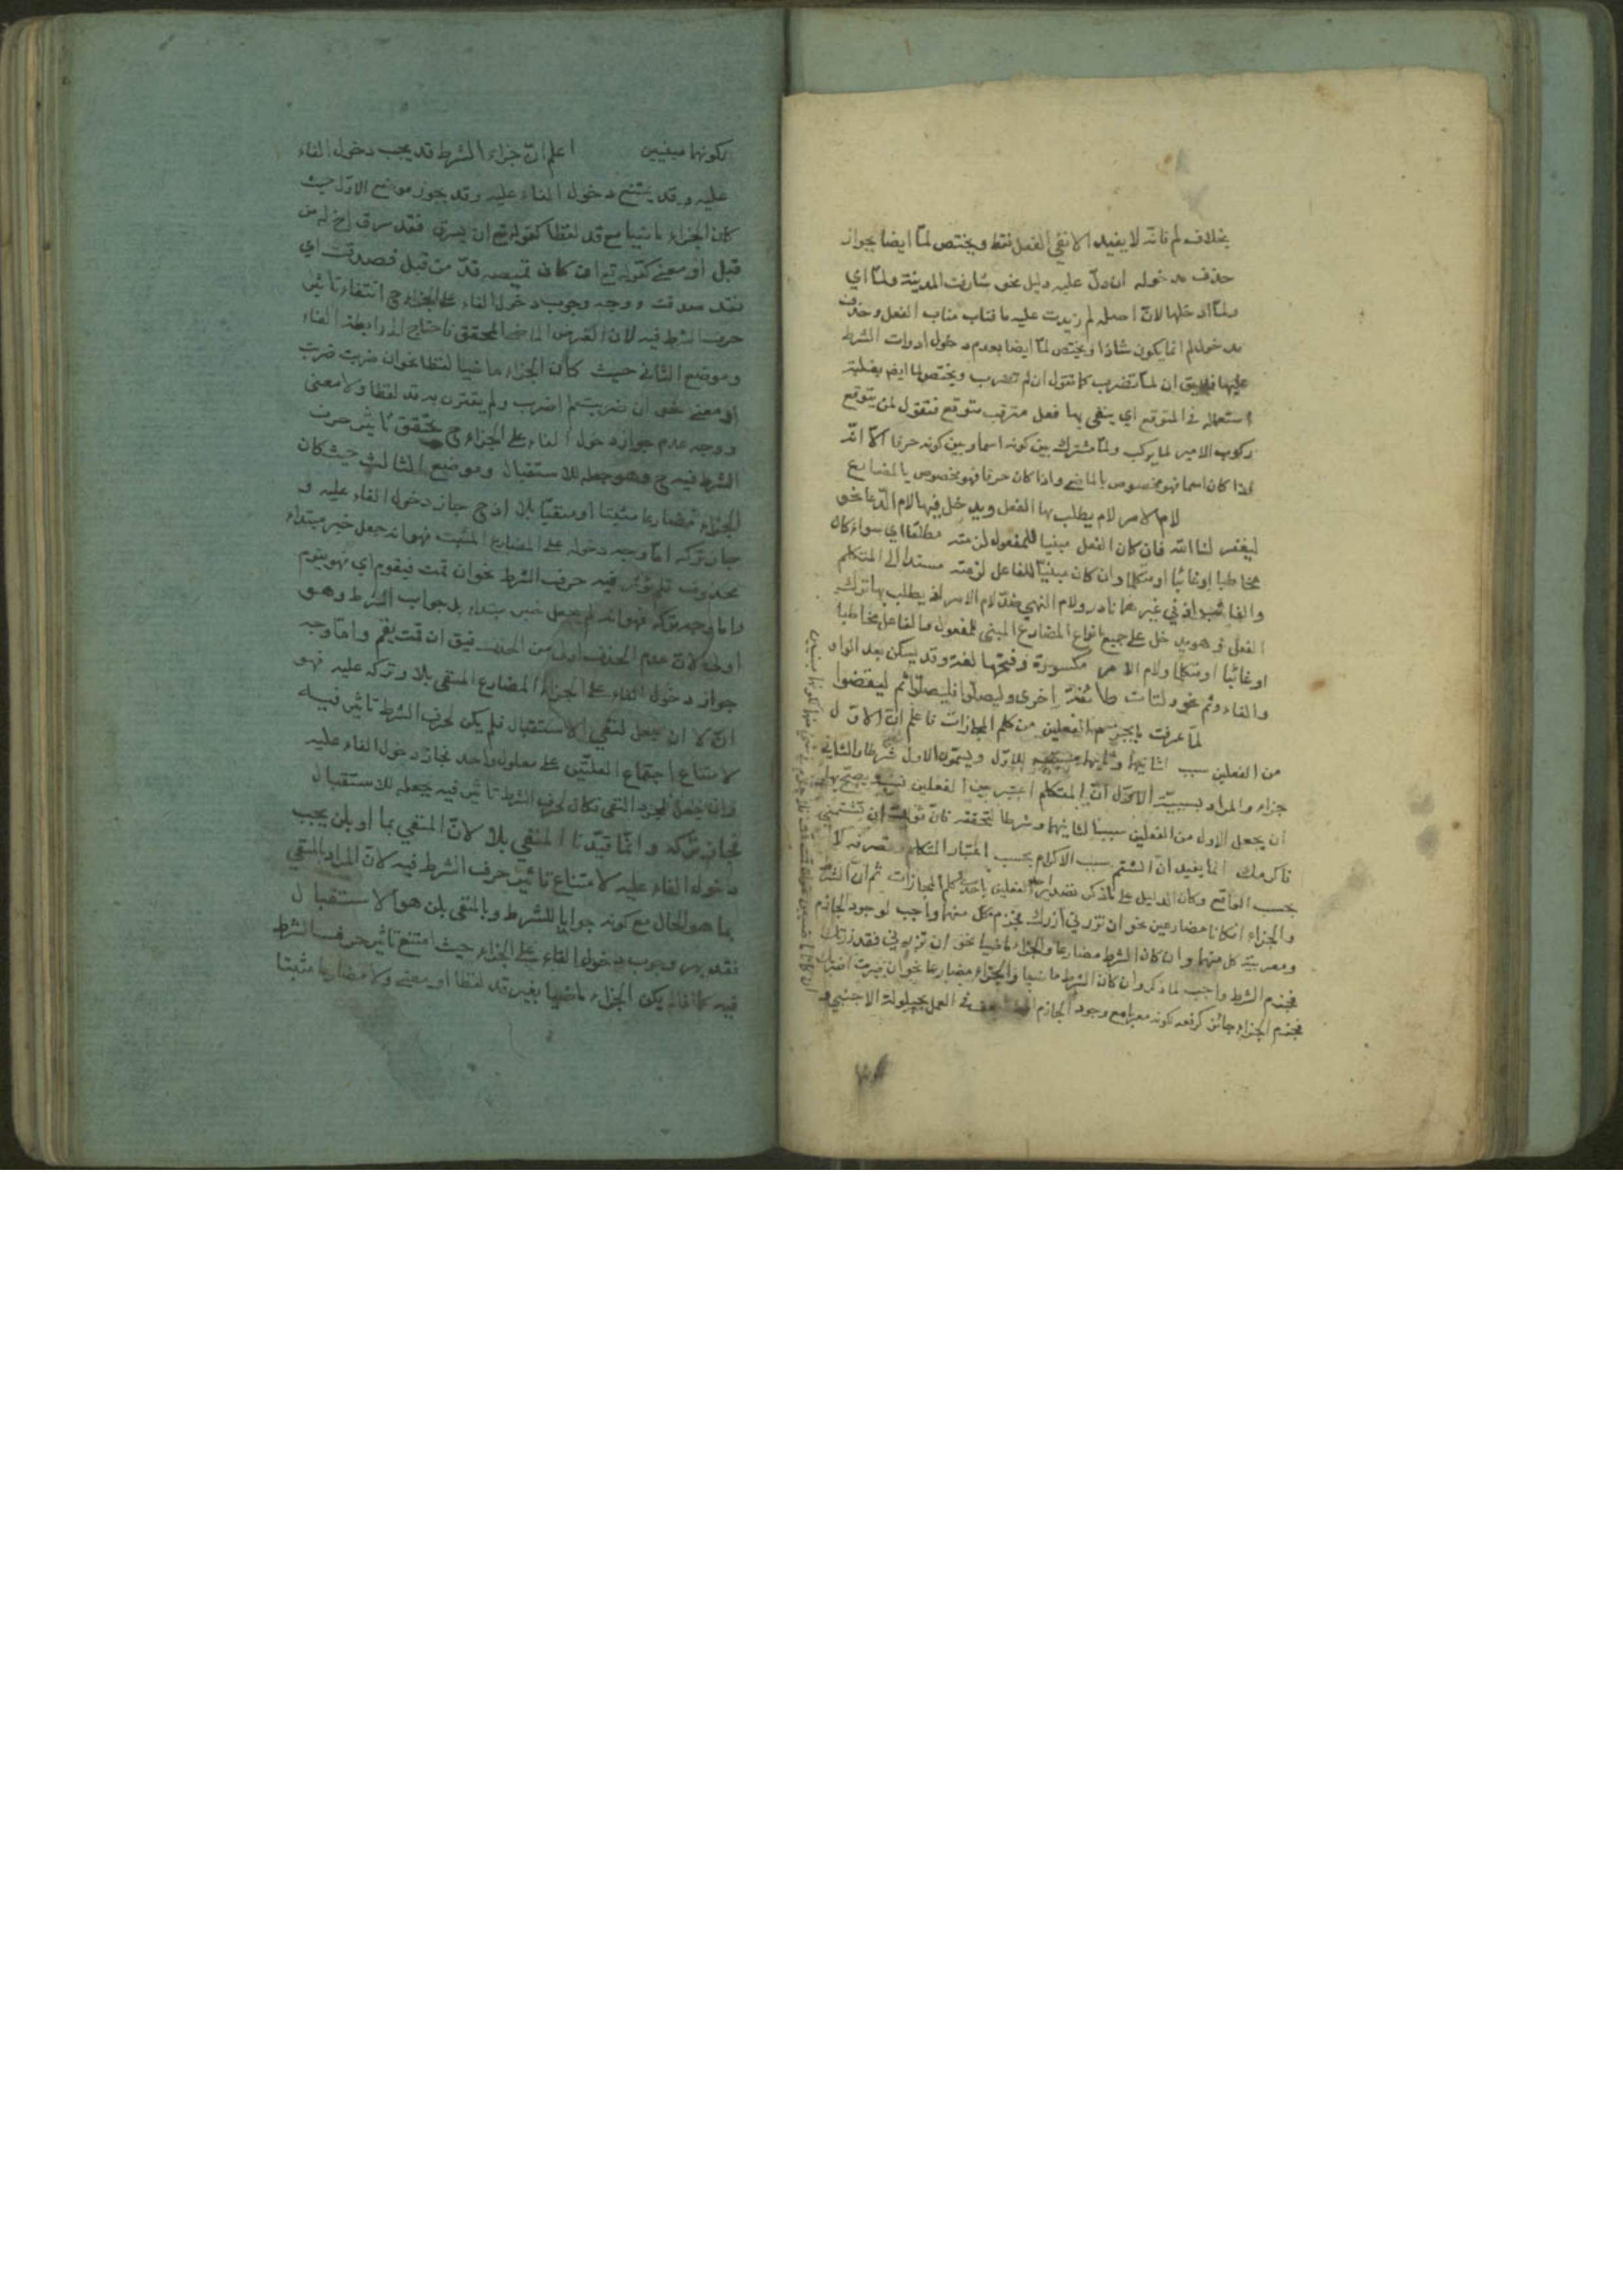 بخلاف لم فانه لا يفيد الا نفي الفعل فقط ويختص لمّا ايضا بجواز
حذف مدخوله ان دلّ عليه دليل نحو شارفت المدينة ولمّا اي
ولمّا ادخلها لانّ اصله لم زيدت عليه ما فناب مناب الفعل وحذف
مدخول لم انما يكون شاذا ويختص لمّا ايضا بعدم دخول ادوات الشرط
عليها فلا يق ان لمّا تضرب كما تقول ان لم تضرب ويختص لما ايض بغلبة
استعماله في المتوقع اي ينفى بها فعل مترقب متوقع فتقول لمن يتوقع
ركوب الامير لما يركب ولمّا مشترك بين كونه اسما وبين كونه حرفا الا انّه
اذا كان اسما فهو مخصوص بالماضي واذا كان حرفا فهو مخصوص بالمضارع
لام الامر لام يطلب بها الفعل ويدخل فيها لام الدّعا نحو
ليغفر لنا الله فان كان الفعل مبنيا للمفعول لزمته مطلقا اي سواء كان
مخاطبا او غائبا او متكلما وان كان مبنيّا للفاعل لزمته مسندا الى المتكلم
والغائب في غيرهما نادر ولام النهي ضدّ لام الامر يطلب بها ترك
الفعل وهو يدخل على جميع انواع المضارع المبني للمفعول والفاعل مخاطبا
او غائبا او متكلما ولام الامر مكسورة وفتحها لغة وقد يسكن بعد الواو
والفاء وثم نحو ولتات طائفة اخرى وليصلّوا فليصلّوا ثم ليقضوا
لمّا عرفت ما يجزم الفعلين من كلم المجازات فاعلم انّ الاوّل
من الفعلين سبب لثانيهما وثانيهما للاوّل ويسمّون الاول شرطا والثاني
جزاء والمراد بسببيّة الاوّل انّ المتكلم اعتبر بين الفعلين يصحّ بها
ان يجعل الاول من الفعلين سببا لثانيهما وشرطا لتحققه فانّ قولك ان تشتمني
فاكرمك انما يفيد انّ الشتم سبب الاكرام بحسب اعتبار المتكلم وتصرفه لا
بحسب الواقع وكان الدليل على ما ذكر الفعلين باحد كلم المجازات ثم انّ الشرط
والجزاء ان كانا مضارعين نحو ان تزرني ازرك فجزم كل منهما واجب لوجود الجازم
ومعربيّة كل منهما وان كان الشرط مضارعا والجزاء ماضيا نحو ان تزرني فقد زرتك
فجزم الشرط واجب لما ذكر وان كان الشرط ماضيا والجزاء مضارعا نحو ان ضربت اضرب
فجزم الجزاء جائز كرفعه لكونه معربا مع وجود الجازم العمل بحيلولة الاجنبي
لكونهما مبنيين اعلم انّ جزاء الشرط قد يجب دخول الفاء
عليه وقد يمتنع دخول الفاء عليه وقد يجوز موضع الاوّل حيث
كان الجزاء ماضيا مع قد لفظا كقوله تع ان يسرق فقد سرق اخ له من
قبل او معنى كقوله تع ان كان قميصه قدّ من قبل فصدقت اي
فقد صدقت ووجه وجوب دخول الفاء على الجزاء ح انتفاء تاثير
حرف الشرط فيه لان الغرض الماضي المحقق فاحتاج الى رابطة الفاء
وموضع الثاني حيث كان الجزاء ماضيا لفظا نحو ان ضربت ضربت
او معنى نحو ان ضربت لم اضرب ولم يقترن به قد لفظا ولا معنى
ووجه عدم جواز دخول الفاء على الجزاء ح تحقق تاثير حرف
الشرط فيه ح وهو جعله للاستقبال وموضع الثالث حيث كان
الجزاء مضارعا مثبتا او منفيّا بلا اذ ح جاز دخول الفاء عليه و
جاز تركه امّا وجه دخوله على المضارع المثبت فهو انه جعل خبر مبتداء
محذوف فلم يؤثر فيه حرف الشرط نحو ان قمت فيقوم اي فهو يقوم
واما وجه تركه فهو انه لم يجعل خبر مبتداء بل جواب الشرط وهو
اولى لانّ عدم الحذف اولى من الحذف فيق ان قمت يقم وامّا وجه
جواز دخول الفاء على الجزاء المضارع المنفي بلا وتركه عليه فهو
انّ لا ان يجعل لنفي الاستقبال فلم يكن لحرف الشرط تاثير فيه
لامتناع اجتماع العلتين على معلول واحد فجاز دخول الفاء عليه
وان جعل لمجرد النفي فكان لحرف الشرط تاثير فيه بجعله للاستقبال
فجاز تركه وانّما قيّدنا المنفي بلا لانّ المنفي بما او بلن يجب
دخول الفاء عليه لامتناع تاثير حرف الشرط فيه لانّ المراد بالمنفي
بما هو الحال مع كونه جوابا للشرط وبالمنفي بلن هو الاستقبال
فقد وجوب دخول الفاء على الجزاء حيث امتنع تاثير حرف الشرط
فيه كما اذا لم يكن الجزاء ماضيا بغير قد لفظا او معنى ولا مضارعا مثبتا